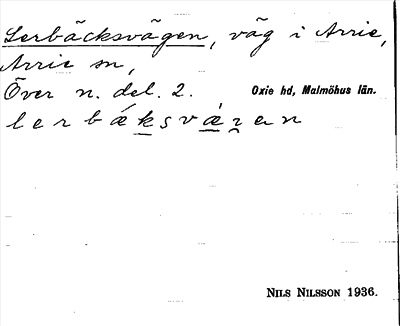 Lerbäcksvägen, väg i Arrie,
Arrie sn,
Över n. del. 2. Oxie hd, Malmöhus län.
lerbǽksvǽɀen
NILS NILSSON 1936.